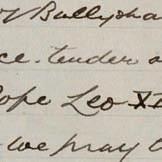 Ballysha
ce. tender a
Pope Leo XI
we pray